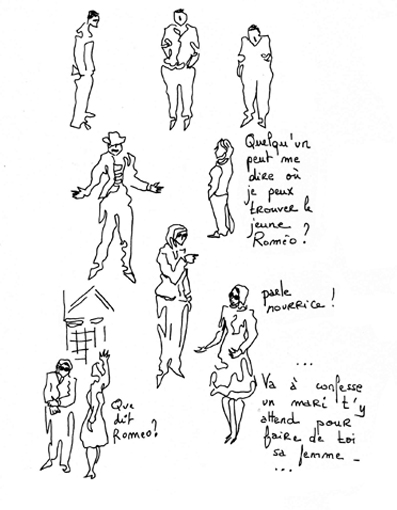 Quelqu'un
peut me
dire où
je peux
trouver le
jeune
Roméo ?
parle
nourrice !
...
Va à confesse
un mari t'y
attend pour
faire de toi
sa femme _
...
Que
dit
Romeo ?